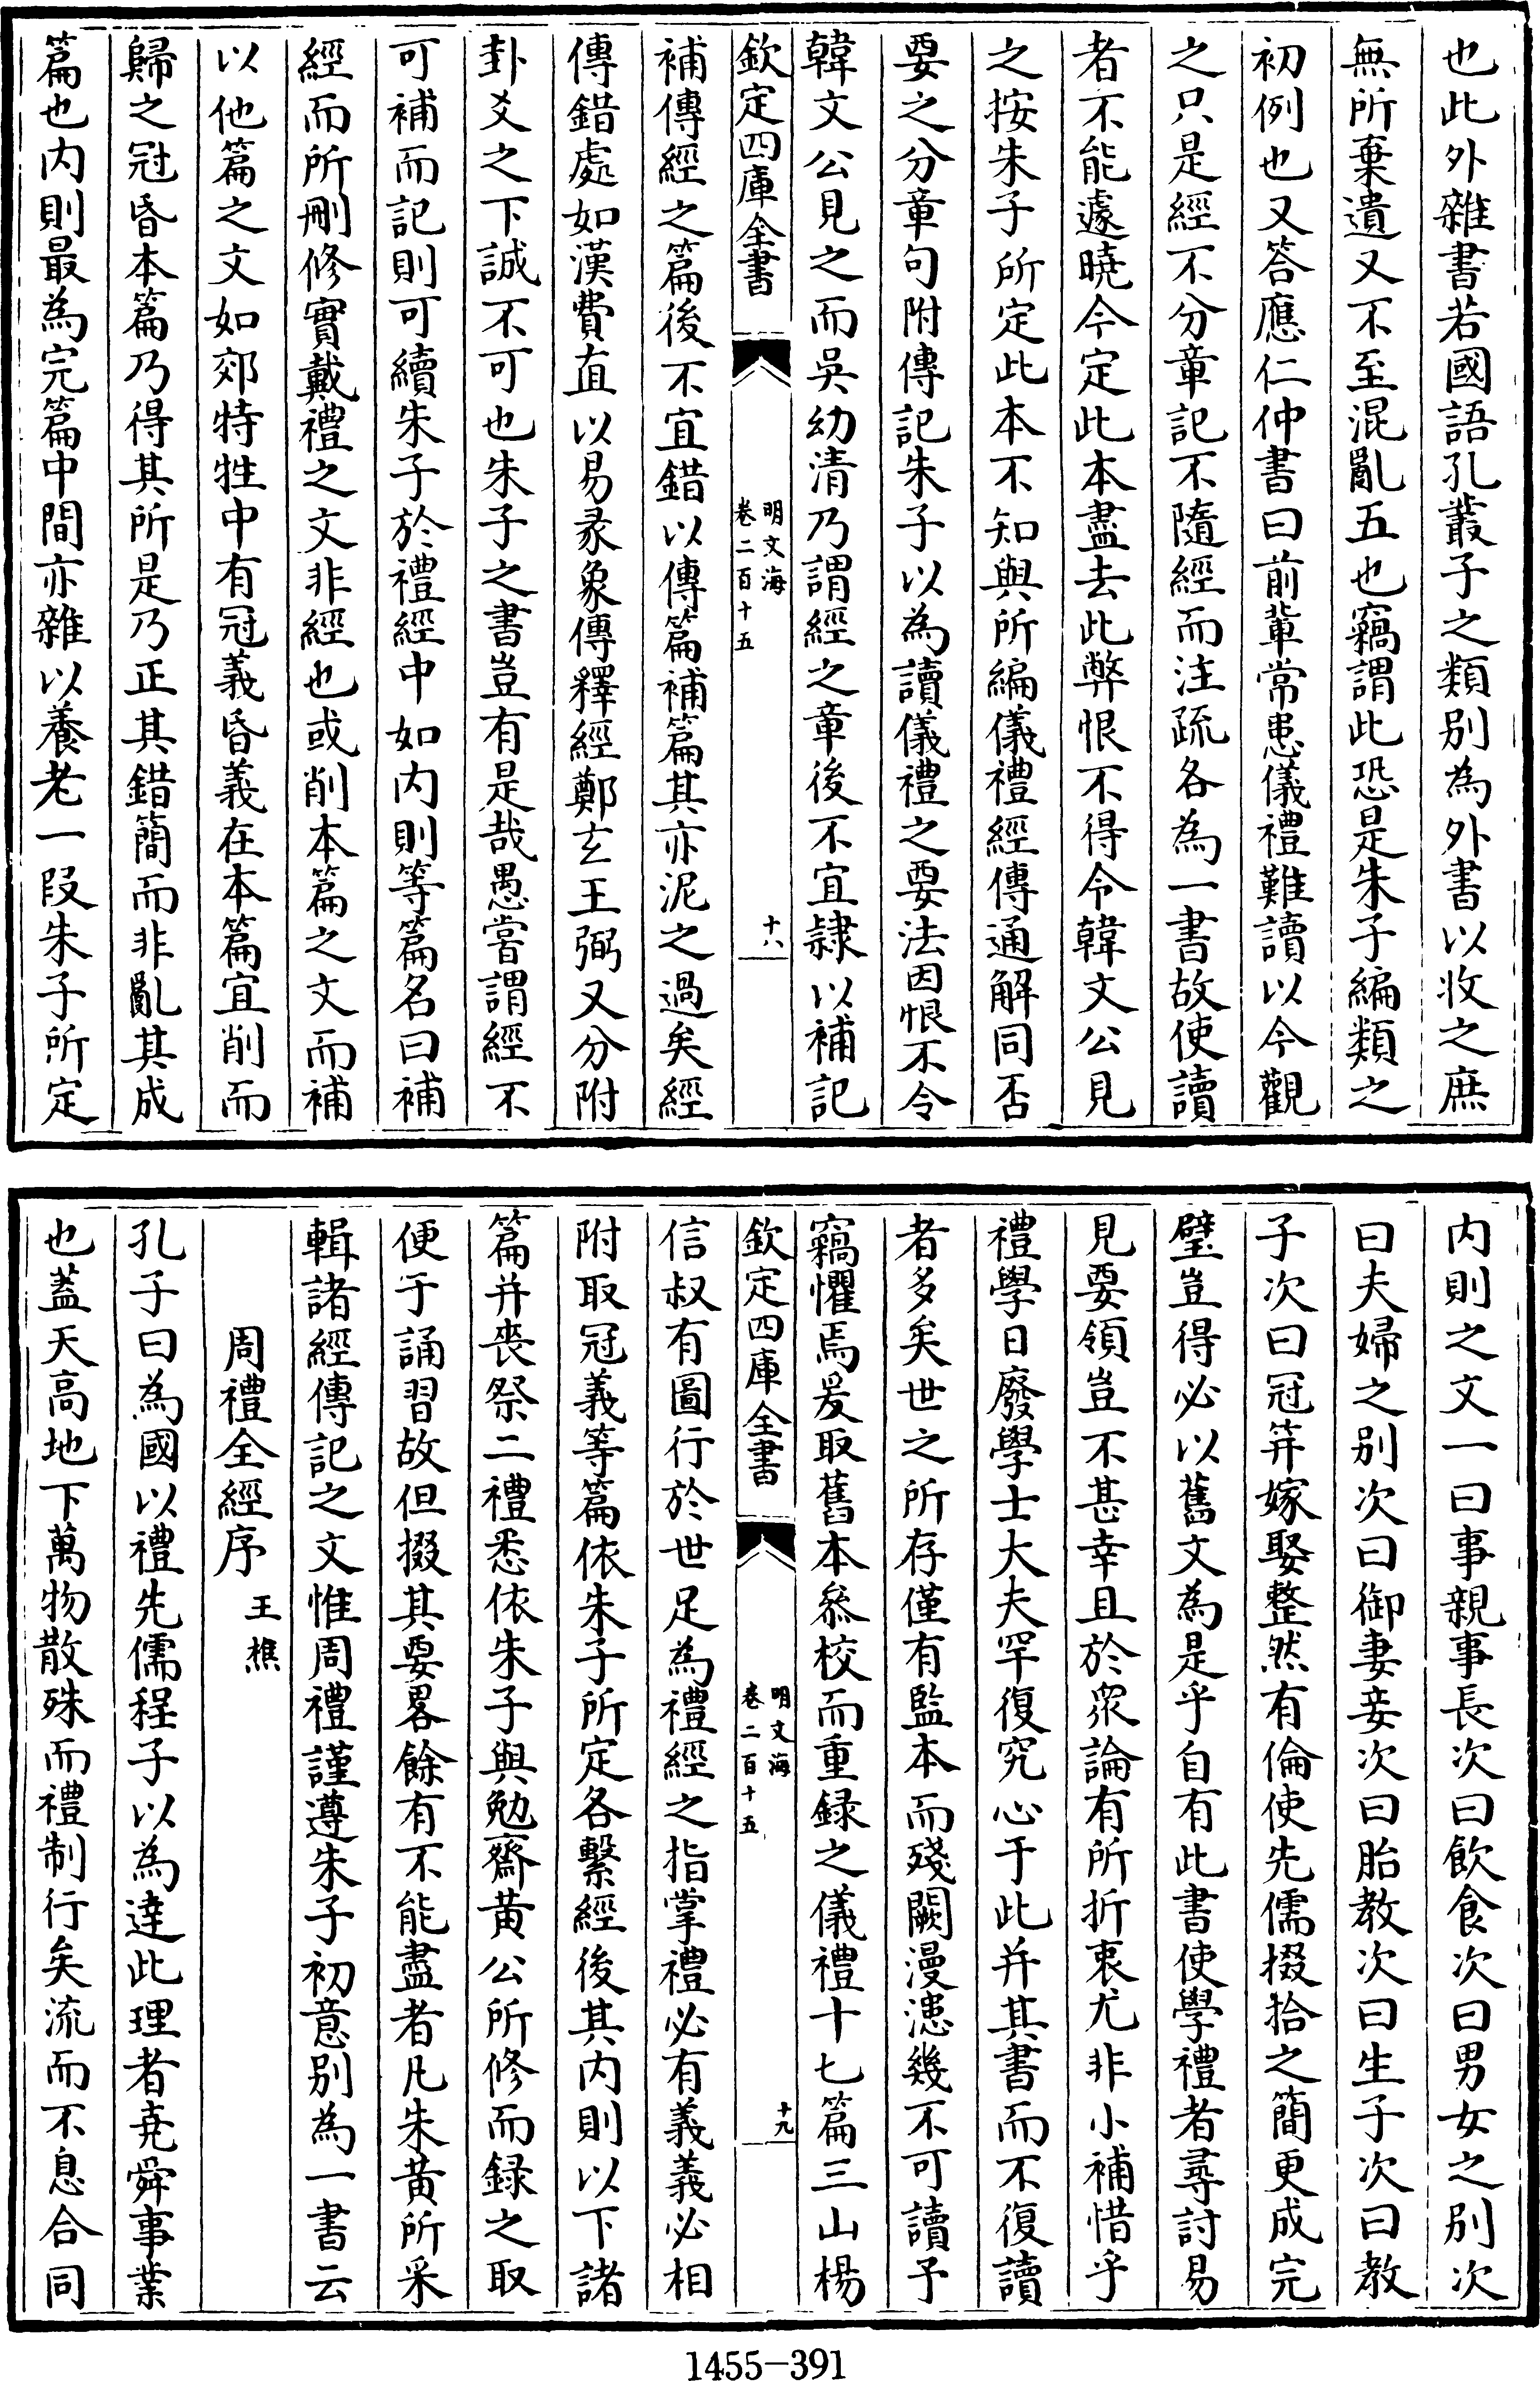 也此外雜書若國語孔叢子之類别為外書以收之庶
無所棄遺又不至混亂五也竊謂此恐是朱子編類之
初例也又答應仁仲書曰前輩常患儀禮難讀以今觀
之只是經不分章記不隨經而注疏各為一書故使讀
者不能遽曉今定此本盡去此弊恨不得令韓文公見
之按朱子所定此本不知與所編儀禮經傳通解同否
要之分章句附傳記朱子以為讀儀禮之要法因恨不令
韓文公見之而吳幼清乃謂經之章後不宜隸以補記
欽定四庫全書
明文海
卷二百十五
十八
補傳經之篇後不宜錯以傳篇補篇其亦泥之過矣經
傳錯處如漢費直以易彖象傳釋經鄭玄王弼又分附
卦爻之下誠不可也朱子之書豈有是哉愚嘗謂經不
可補而記則可續朱子於禮經中如内則等篇名曰補
經而所刪修實戴禮之文非經也或削本篇之文而補
以他篇之文如郊特牲中有冠義昏義在本篇宜削而
歸之冠昏本篇乃得其所是乃正其錯簡而非亂其成
篇也内則最為完篇中間亦雜以養老一段朱子所定
内則之文一曰事親事長次曰飲食次曰男女之别次
曰夫婦之别次曰御妻妾次曰胎教次曰生子次曰教
子次曰冠笄嫁娶整然有倫使先儒掇拾之簡更成完
璧豈得必以舊文為是乎自有此書使學禮者尋討易
見要領豈不甚幸且於衆論有所折衷尤非小補惜乎
禮學日廢學士大夫罕復究心于此并其書而不復讀
者多矣世之所存僅有監本而殘闕漫漶幾不可讀予
竊懼焉爰取舊本叅校而重録之儀禮十七篇三山楊
欽定四庫全書
明文海
卷二百十五
十九
信叔有圖行於世足為禮經之指掌禮必有義義必相
附取冠義等篇依朱子所定各繫經後其内則以下諸
篇并喪祭二禮悉依朱子與勉齋黄公所修而録之取
便于誦習故但掇其要畧餘有不能盡者凡朱黄所采
輯諸經傳記之文惟周禮謹遵朱子初意别為一書云
周禮全經序
王樵
孔子曰為國以禮先儒程子以為達此理者堯舜事業
也蓋天高地下萬物散殊而禮制行矣流而不息合同
1455-391